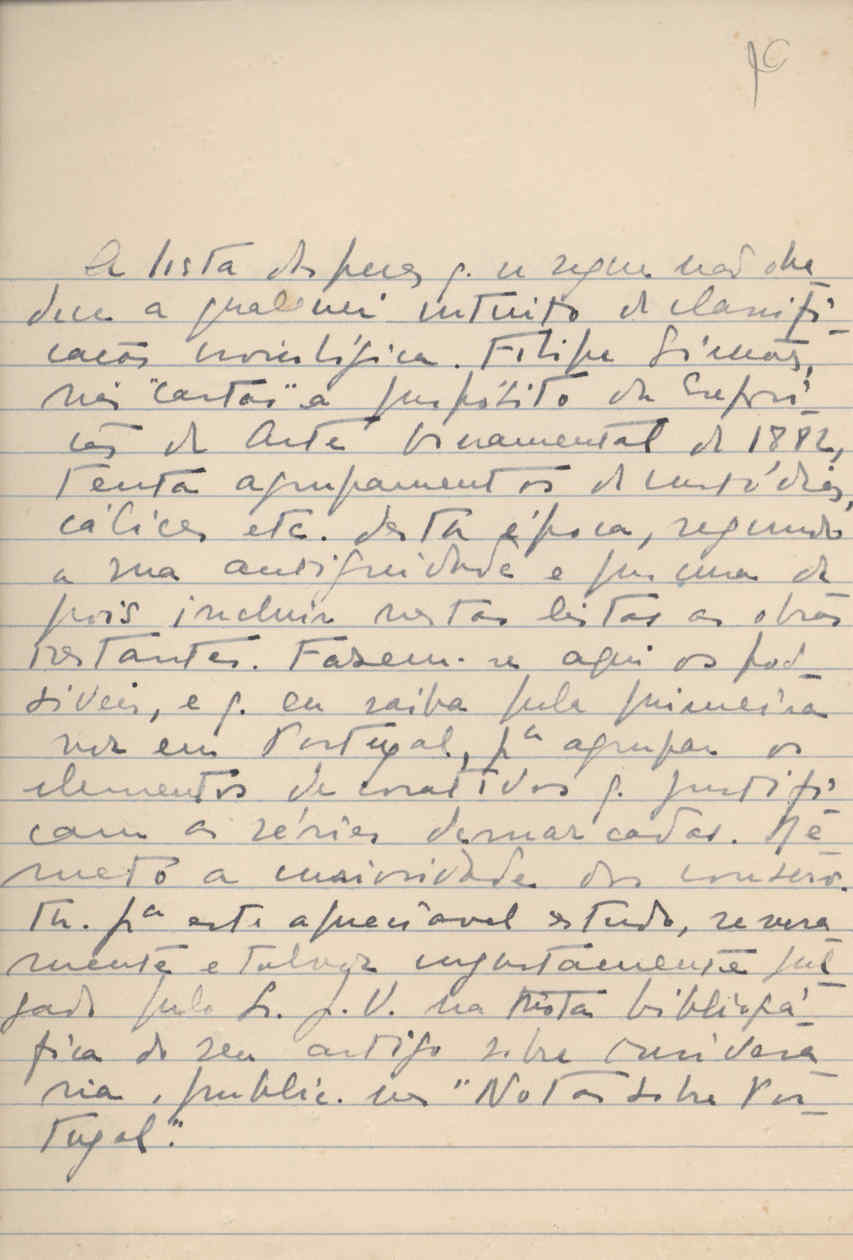 A lista das peças q. se segue não obe
dece a qualquer intuito de classifi
cação cronológica. Filipe Simões,
nas "cartas" a propósito da Exposi
ção de Arte Ornamental de 1882,
tenta agrupamentos de custódias,
cálices etc. desta época, segundo
a sua antiguidade e procura de
pois incluir nestas listas as obras
restantes. Fazem-se aqui os pos
síveis, e q. eu saiba pela primeira
vez em Portugal, pª agrupar os
elementos decorativos q. justifi
cam as séries demarcadas. Re
meto a maioridade dos
pª este apreciavel estudo, severa
mente e talvez injustamente jul
gado pelo Sr. J. V. na Nota bibliográ
fica do seu artigo sobre ourivesa
ria, public. nas "Notas sobre Por
tugal".